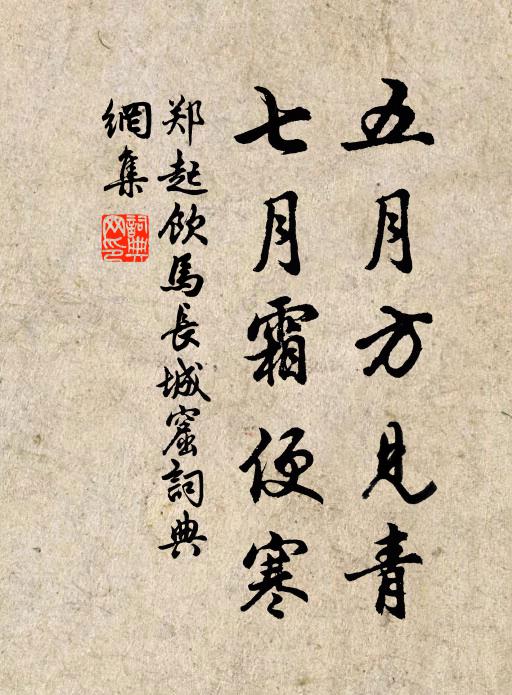 五月方見青
七月霜便寒
郑起飲馬長城窟詞典
網集
詞典
网印